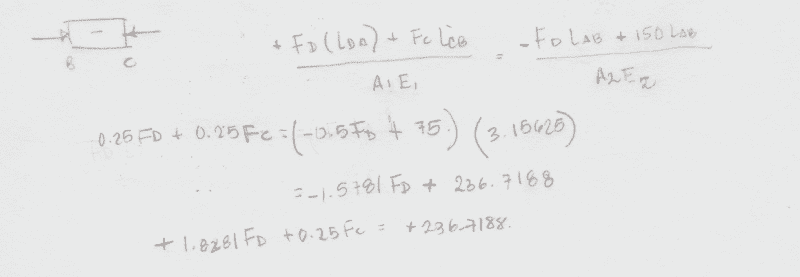 -
B C
+ FD (LDA) + FC LCB = -FD LAB + 150 LAB
A1 E1 A2 E2
0.25 FD + 0.25 FC = (-0.5 FD + 75) (3.15625)
= -1.5781 FD + 236.7188
+ 1.8281 FD + 0.25 FC = +236.7188.